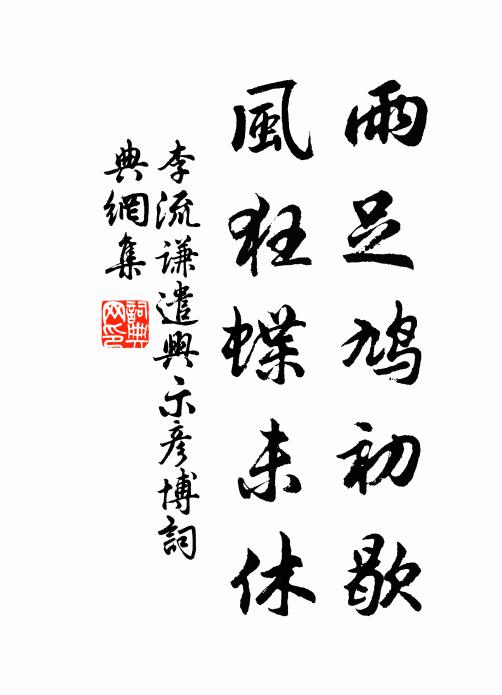 雨足鳩初歇
風狂蝶未休
李流謙遣興示彦博詞
典網集
詞典網印